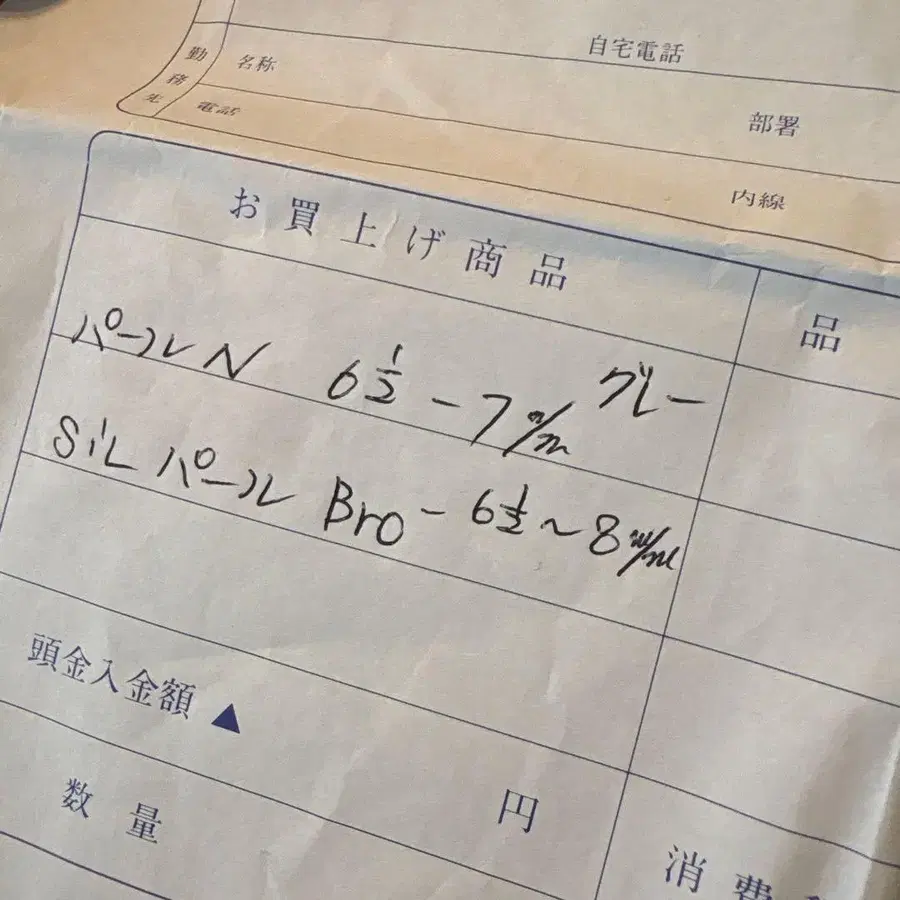 自宅電話
勤務先 名称
電話 部署
内線
お買上げ商品 品
パールN 6½-7m/m グレー
SiL パール Bro-6½~8m/m
頭金入金額▲
数量 円
消費